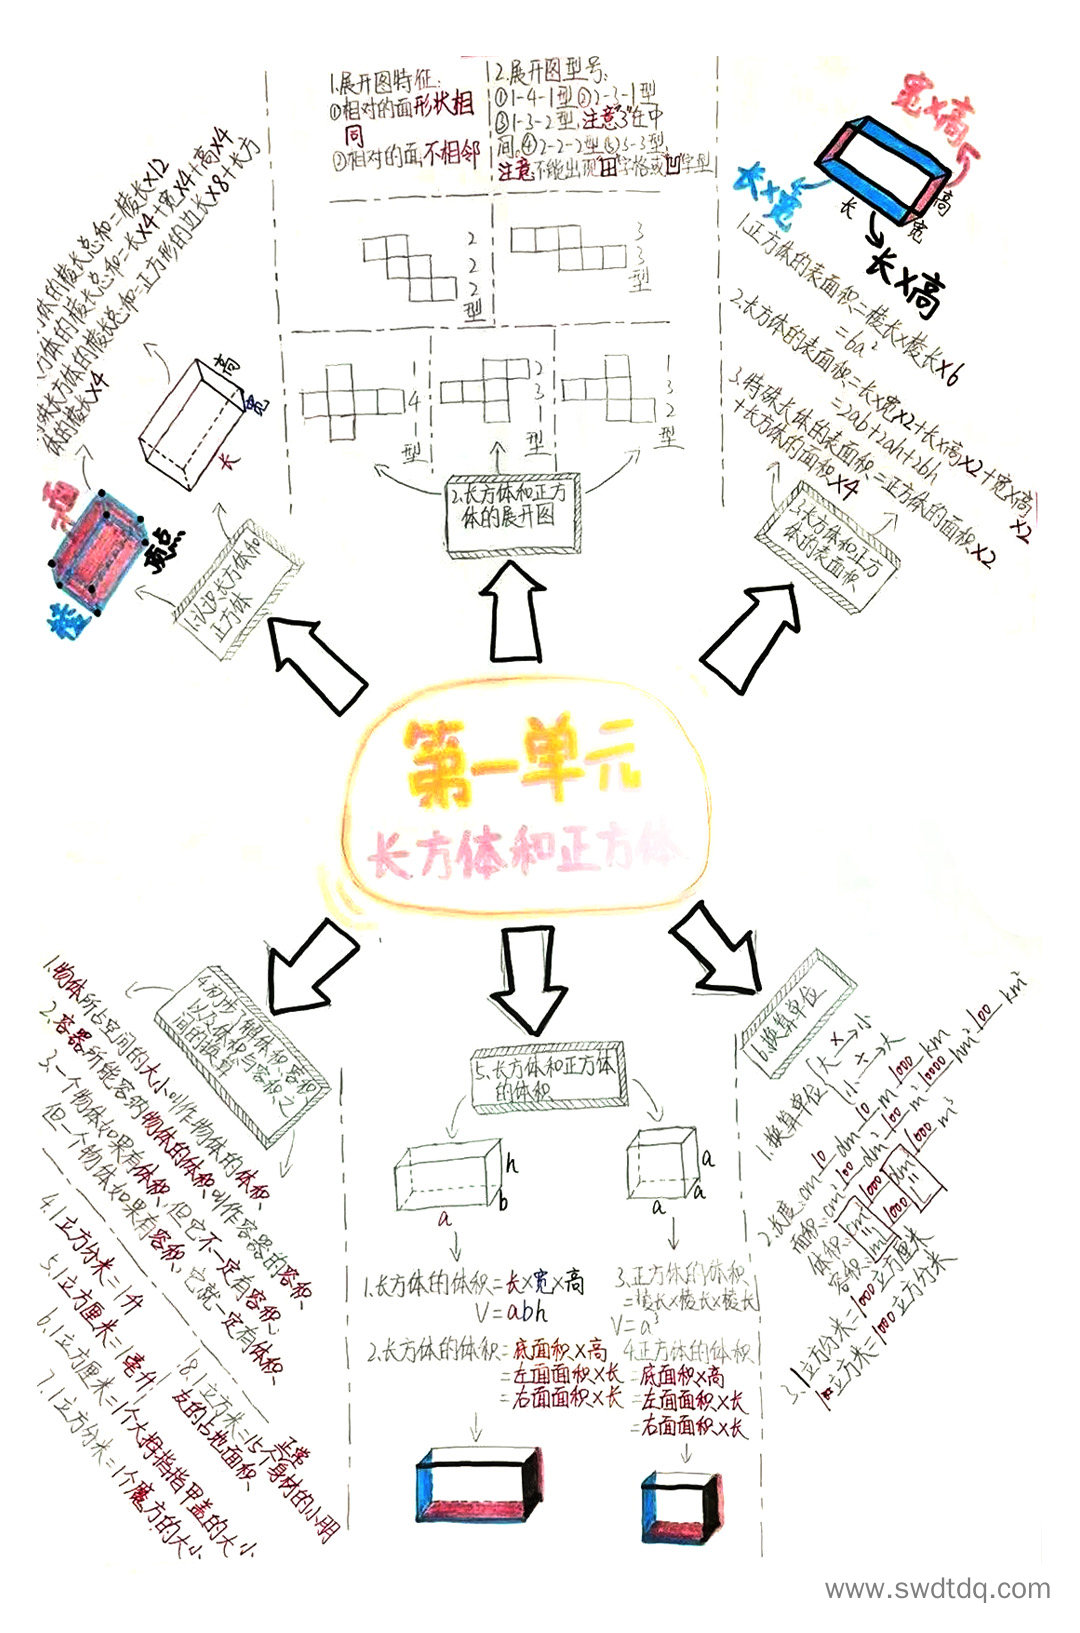 第一单元
长方体和正方体
1.认识长方体和
正方体
面
顶点
棱
高
宽
长
体的棱长总和=棱长×12
方体的棱长总和=长×4+宽×4+高×4
殊长方体的棱长总和=正方形的边长×8+长方
体的棱长×4
2.长方体和正方
体的展开图
1.展开图特征:
①相对的面形状相
同
②相对的面,不相邻
2.展开图型号:
①1-4-1型②2-3-1型
③1-3-2型,注意"3"在中
间,④2-2-2型⑤3-3型
注意:不能出现"田"字格或"凹"字型
2
2
2
型
3
3
型
1
4
1
型
2
3
1
型
1
3
2
型
3.长方体和正方
体的表面积
宽×高
长×宽
长
宽
高
长×高
1.正方体的表面积=棱长×棱长×6
=6a²
2.长方体的表面积=长×宽×2+长×高×2+宽×高×2
=2ab+2ah+2bh
3.特殊长体的表面积=正方体的面积×2
+长方体的面积×4
4.初步了解体积,容积
以及体积与容积之
间的换算
1.物体所占空间的大小叫作物体的体积、
2.容器所能容纳物体的体积,叫作容器的容积、
3.一个物体如果有体积,但它不一定有容积;
但一个物体如果有容积,它就一定有体积、
4.1立方分米=1升
5.1立方厘米=1毫升
6.1立方厘米=1个大拇指指甲盖的大小
7.1立方分米=1个魔方的大小
8.1立方米=15个正常身材的小朋
友的占地面积、
5.长方体和正方体
的体积
h
b
a
a
a
a
1.长方体的体积=长×宽×高
V=abh
2.长方体的体积=底面积×高
=左面面积×长
=右面面积×长
3.正方体的体积
=棱长×棱长×棱长
V=a³
4.正方体的体积
=底面积×高
=左面面积×长
=右面面积×长
6.换算单位
1.换算单位 大 × 小
小 ÷ 大
2.长度:cm 10 dm 10 m 1000 km
面积:cm² 100 dm² 100 m² 10000 hm² 100 km²
体积:cm³ 1000 dm³ 1000 m³
容积:
3.1立方分米=1000立方厘米
1立方米=1000立方分米
www.swdtdq.com